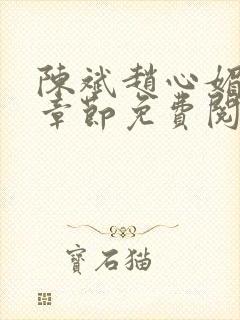 陳斌趙心媚
章節免費閱
寶石猫